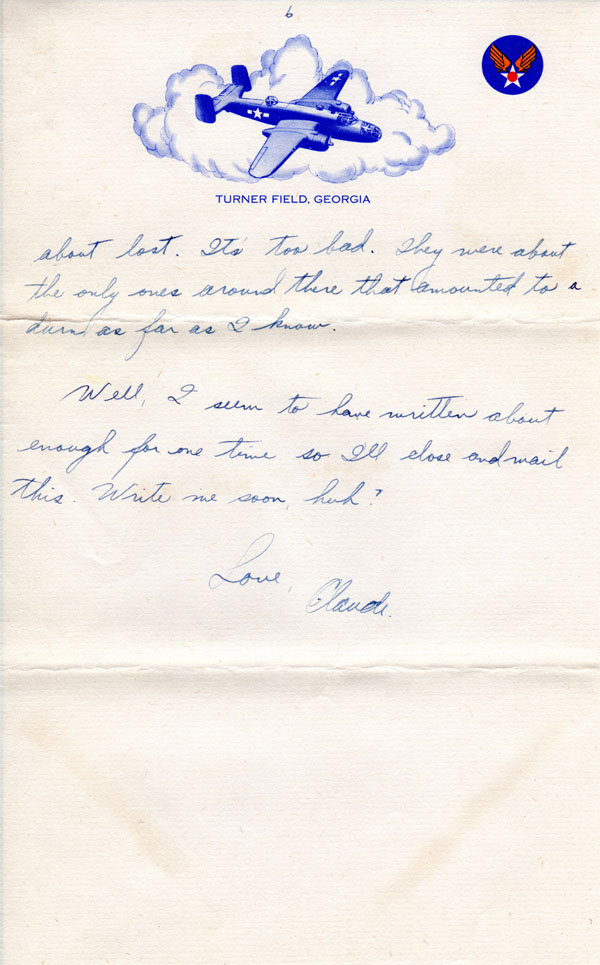 6
TURNER FIELD, GEORGIA
about lost. It's too bad. They were about
the only ones around there that amounted to a
durn as far as I know.
Well, I seem to have written about
enough for one time so I'll close and mail
this. Write me soon, huh?
Love,
Claude.